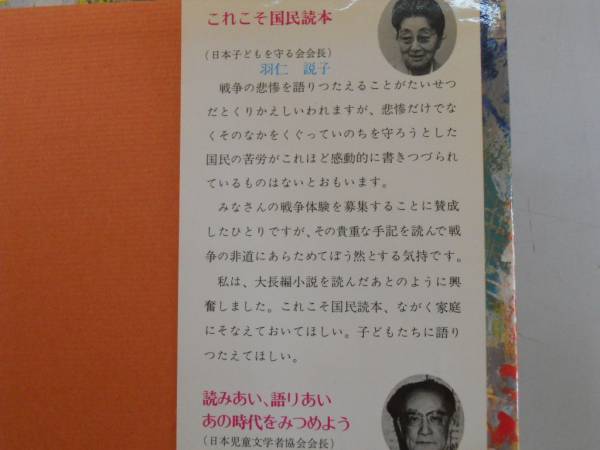 これこそ国民読本
(日本子どもを守る会会長)
羽仁 説子
戦争の悲惨を語りつたえることがたいせつ
だとくりかえしいわれますが、悲惨だけでな
くそのなかをくぐっていのちを守ろうとした
国民の苦労がこれほど感動的に書きつづられ
ているものはないとおもいます。
みなさんの戦争体験を募集することに賛成
したひとりですが、その貴重な手記を読んで戦
争の非道にあらためてぼう然とする気持です。
私は、大長編小説を読んだあとのように興
奮しました。これこそ国民読本、ながく家庭
にそなえておいてほしい。子どもたちに語り
つたえてほしい。
読みあい、語りあい
あの時代をみつめよう
(日本児童文学者協会会長)